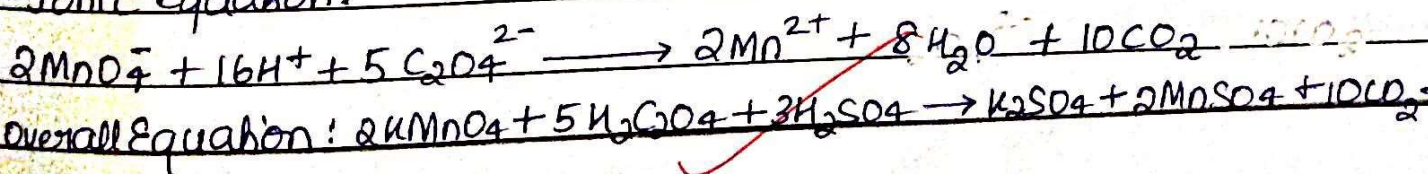 Ionic Equation:
2MnO₄⁻ + 16H⁺ + 5C₂O₄²⁻ ⟶ 2Mn²⁺ + 8H₂O + 10CO₂
Overall Equation: 2KMnO₄ + 5H₂C₂O₄ + 3H₂SO₄ → K₂SO₄ + 2MnSO₄ + 10CO₂